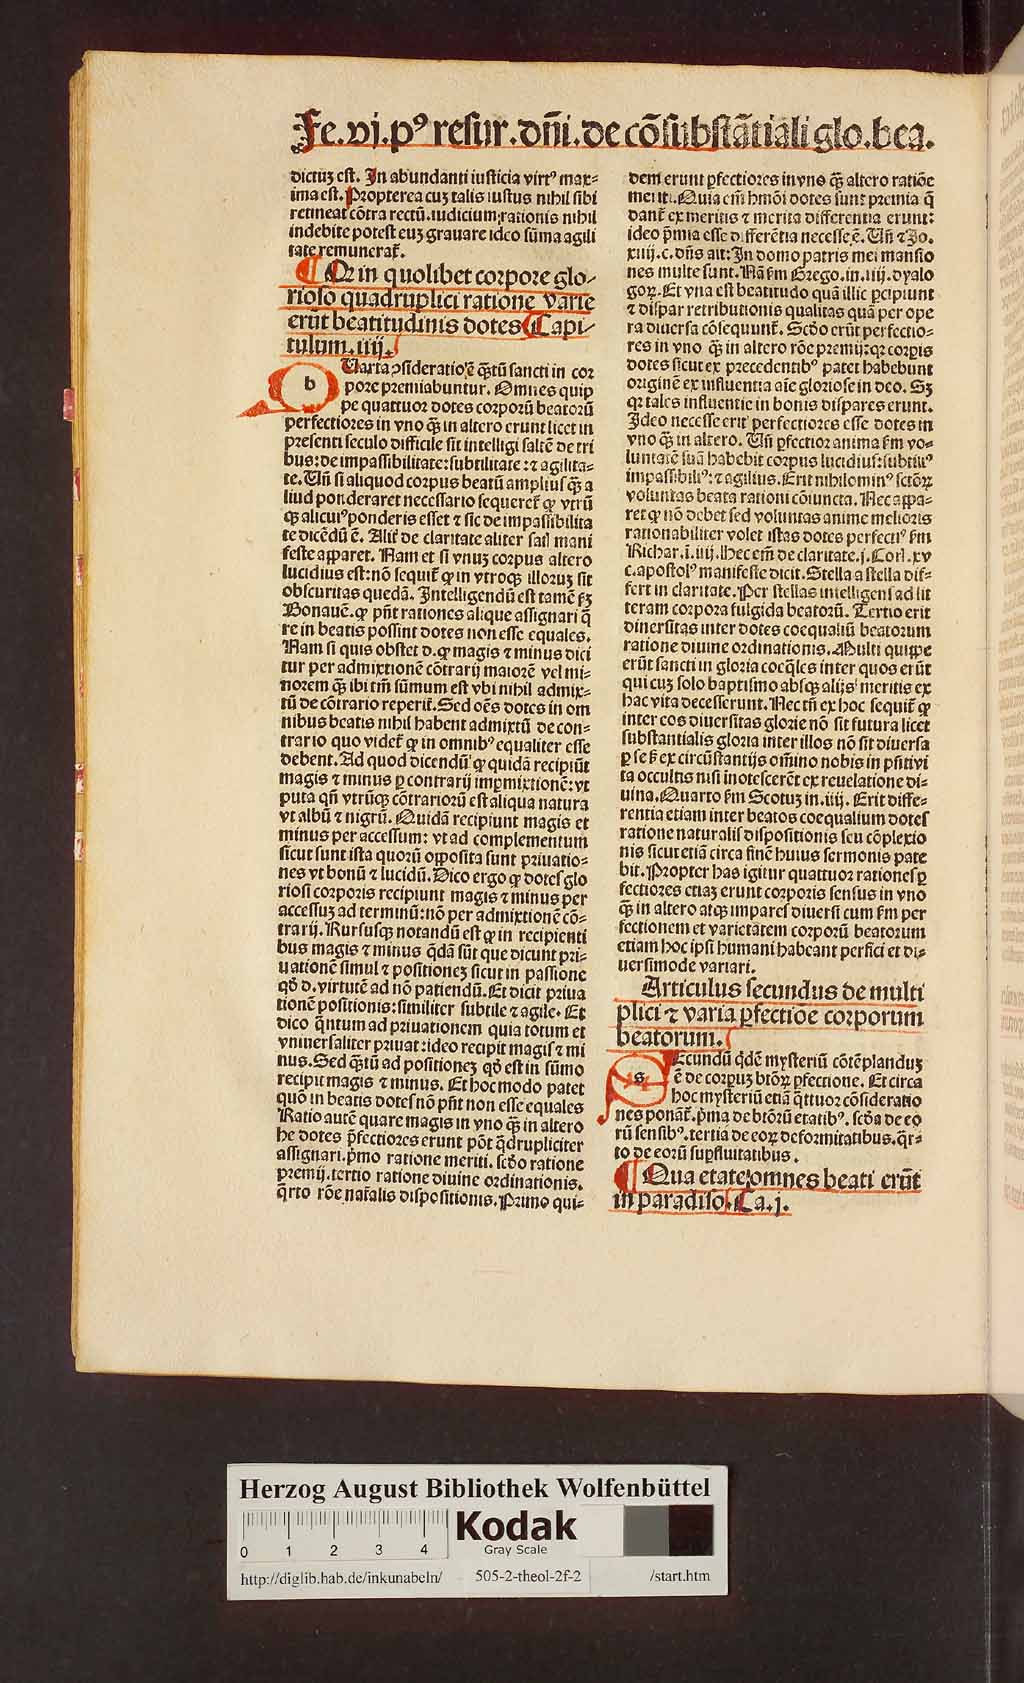 Fe.vj.pꝰ resur.dn̄i.de cōsubstātiali glo.bea.
dictuꝫ est. In abundanti iusticia virtꝰ max⸗
ima est. Propterea cuꝫ talis iustus nihil sibi
retineat cōtra rectū.iudicium;rationis nihil
indebite potest euꝫ grauare ideo sūma agili
tate remunerat̄.
¶ Qꝛ in quolibet corpore glo⸗
rioso quadruplici ratione varie
erūt beatitudinis dotes ¶ Capi⸗
tulum.iiij.
b
Uarta ꝯsideratio ē qꝫtū sancti in cor
pore premiabuntur. Omnes quip
pe quattuor dotes corporū beatorū
perfectiores in vno qꝫ in altero erunt licet in
presenti seculo difficile sit intelligi saltē de tri
bus:de impassibilitate:subtilitate:⁊ agilita⸗
te.Un̄ si aliquod corpus beatū ampliꝰ qꝫ a
liud ponderaret necessario sequeret̄ ꝙ vtrū
qꝫ alicuiꝰ ponderis esset ⁊ sic de impassibilita
te dicēdū ē. Alit̄ de claritate aliter satꝭ mani
feste apparet. Nam et si vnuꝫ corpus altero
lucidius est:nō sequit̄ ꝙ in vtroqꝫ illoruꝫ sit
obscuritas quedā. Intelligendū est tamē ẜm
Bonauē.ꝙ pn̄t rationes alique assignari q̄
re in beatis possint dotes non esse equales.
Nam si quis obstet d.ꝙ magis ⁊ minus dici
tur per admixtionē cōtrarij maiorē vel mi⸗
norem qꝫ ibi tm̄ sūmum est vbi nihil admix⸗
tū de cōtrario reperit̄. Sed oēs dotes in om
nibus beatis nihil habent admixtū de con⸗
trario quo videt̄ ꝙ in omnibꝰ equaliter esse
debent. Ad quod dicendū ꝙ quidā recipiūt
magis ⁊ minus ꝑ contrarij imꝑmixtionē:vt
puta qn̄ vtrūqꝫ cōtrariorū est aliqua natura
vt albū ⁊ nigrū. Quidā recipiunt magis et
minus per accessum: vt ad complementum
sicut sunt ista quorū opposita sunt priuatio⸗
nes vt bonū ⁊ lucidū. Dico ergo ꝙ dotes glo
riosi corporis recipiunt magis ⁊ minus per
accessuꝫ ad terminū:nō per admixtionē cō⸗
trarij. Rursusqꝫ notandū est ꝙ in recipienti
bus magis ⁊ minus q̄dā sūt que dicunt pri⸗
uationē simul ⁊ positioneꝫ sicut in passione
qd̄ d.virtutē ad nō patiendū.Et dicit priua
tionē positionis:similiter subtile ⁊ agile. Et
dico q̄ntum ad priuationem quia totum et
vniuersaliter priuat:ideo recipit magis ⁊ mi
nus. Sed qꝫtū ad positioneꝫ qd̄ est in sūmo
recipit magis ⁊ minus. Et hoc modo patet
quō in beatis dotes nō pn̄t non esse equales
Ratio autē quare magis in vno qꝫ in altero
he dotes ꝑfectiores erunt pōt q̄drupliciter
assignari.pͥmo ratione meriti. scd̄o ratione
premij.tertio ratione diuine ordinationis.
q̄rto rōe nat̄alis dispositionis. Primo qui⸗
dem erunt ꝑfectiores in vno qꝫ altero ratiōe
meriti.Quia em̄ hmōi dotes sunt premia q̄
dant̄ ex meritis ⁊ merita differentia erunt:
ideo pͥmia esse differētia necesse ē. Un̄ ⁊ Jo.
xiiij.c. dn̄s ait: In domo patris mei mansio
nes multe sunt. Nā ẜm Grego.in.iiij.dyalo
goꝝ. Et vna est beatitudo quā illic ꝑcipiunt
⁊ dispar retributionis qualitas quā per ope
ra diuersa cōsequunt̄. Scd̄o erūt perfectio⸗
res in vno qꝫ in altero rōe premij:qꝛ corpis
dotes sicut ex precedentibꝰ patet habebunt
originē ex influentia aīe gloriose in deo. Sꝫ
qꝛ tales influentie in bonis dispares erunt.
Ideo necesse erit perfectiores esse dotes in
vno qꝫ in altero. Un̄ ꝑfectior anima ẜm vo⸗
luntatē suā habebit corpus lucidius:subtiliꝰ
impassibiliꝰ:⁊ agilius. Erit nihilominꝰ sctōꝝ
voluntas beata rationi cōiuncta. Nec appa⸗
ret ꝙ nō debet sed voluntas anime melioris
rationabiliter volet istas dotes perfectiꝰ ẜm
Richar.ī.iiij.Hec em̄ de claritate.j.Corī.xv
c.apostolꝰ manifeste dicit. Stella a stella dif⸗
fert in claritate. Per stellas intelligens ad lit
teram corpora fulgida beatorū. Tertio erit
diuersitas inter dotes coequaliū beatorum
ratione diuine ordinationis. Multi quippe
erūt sancti in gloria coeq̄les inter quos erūt
qui cuꝫ solo baptismo absqꝫ alijs meritis ex
hac vita decesserunt. Nec tn̄ ex hoc sequit̄ ꝙ
inter eos diuersitas glorie nō sit futura licet
substantialis gloria inter illos nō sit diuersa
ꝑ se s̄ ex circūstantijs om̄ino nobis in pn̄ti vi
ta occultis nisi inotescerēt ex reuelatione di⸗
uina. Quarto ẜm Scotuꝫ in.iiij. Erit diffe⸗
rentia etiam inter beatos coequalium dotes
ratione naturalis dispositionis seu cōplexio
nis sicut etiā circa finē huius sermonis pate
bit. Propter has igitur quattuor rationes ꝑ
fectiores etiaꝫ erunt corporis sensus in vno
qꝫ in altero atqꝫ impares diuersi cum ẜm per
fectionem et varietatem corporū beatorum
etiam hoc ipsi humani habeant perfici et di⸗
uersimode variari.
Articulus secundus de multi
plici ⁊ varia ꝑfectiōe corporum
beatorum.
s
Ecundū q̄dē mysteriū cōtēplanduꝫ
ē de corpoꝝ btōꝝ ꝑfectione. Et circa
hoc mysteriū etiā q̄ttuor cōsideratio
nes ponāt̄. pͥma de btōrū etatibꝰ. scd̄a de eo
rū sensibꝰ. tertia de eoꝝ deformitatibus. q̄r⸗
to de eorū suꝑfluitatibus.
¶ Qua etate omnes beati erūt
in paradiso. Ca.j.
Herzog August Bibliothek Wolfenbüttel
0 1 2 3 4
Kodak
Gray Scale
http://diglib.hab.de/inkunabeln/ 505-2-theol-2f-2 /start.htm